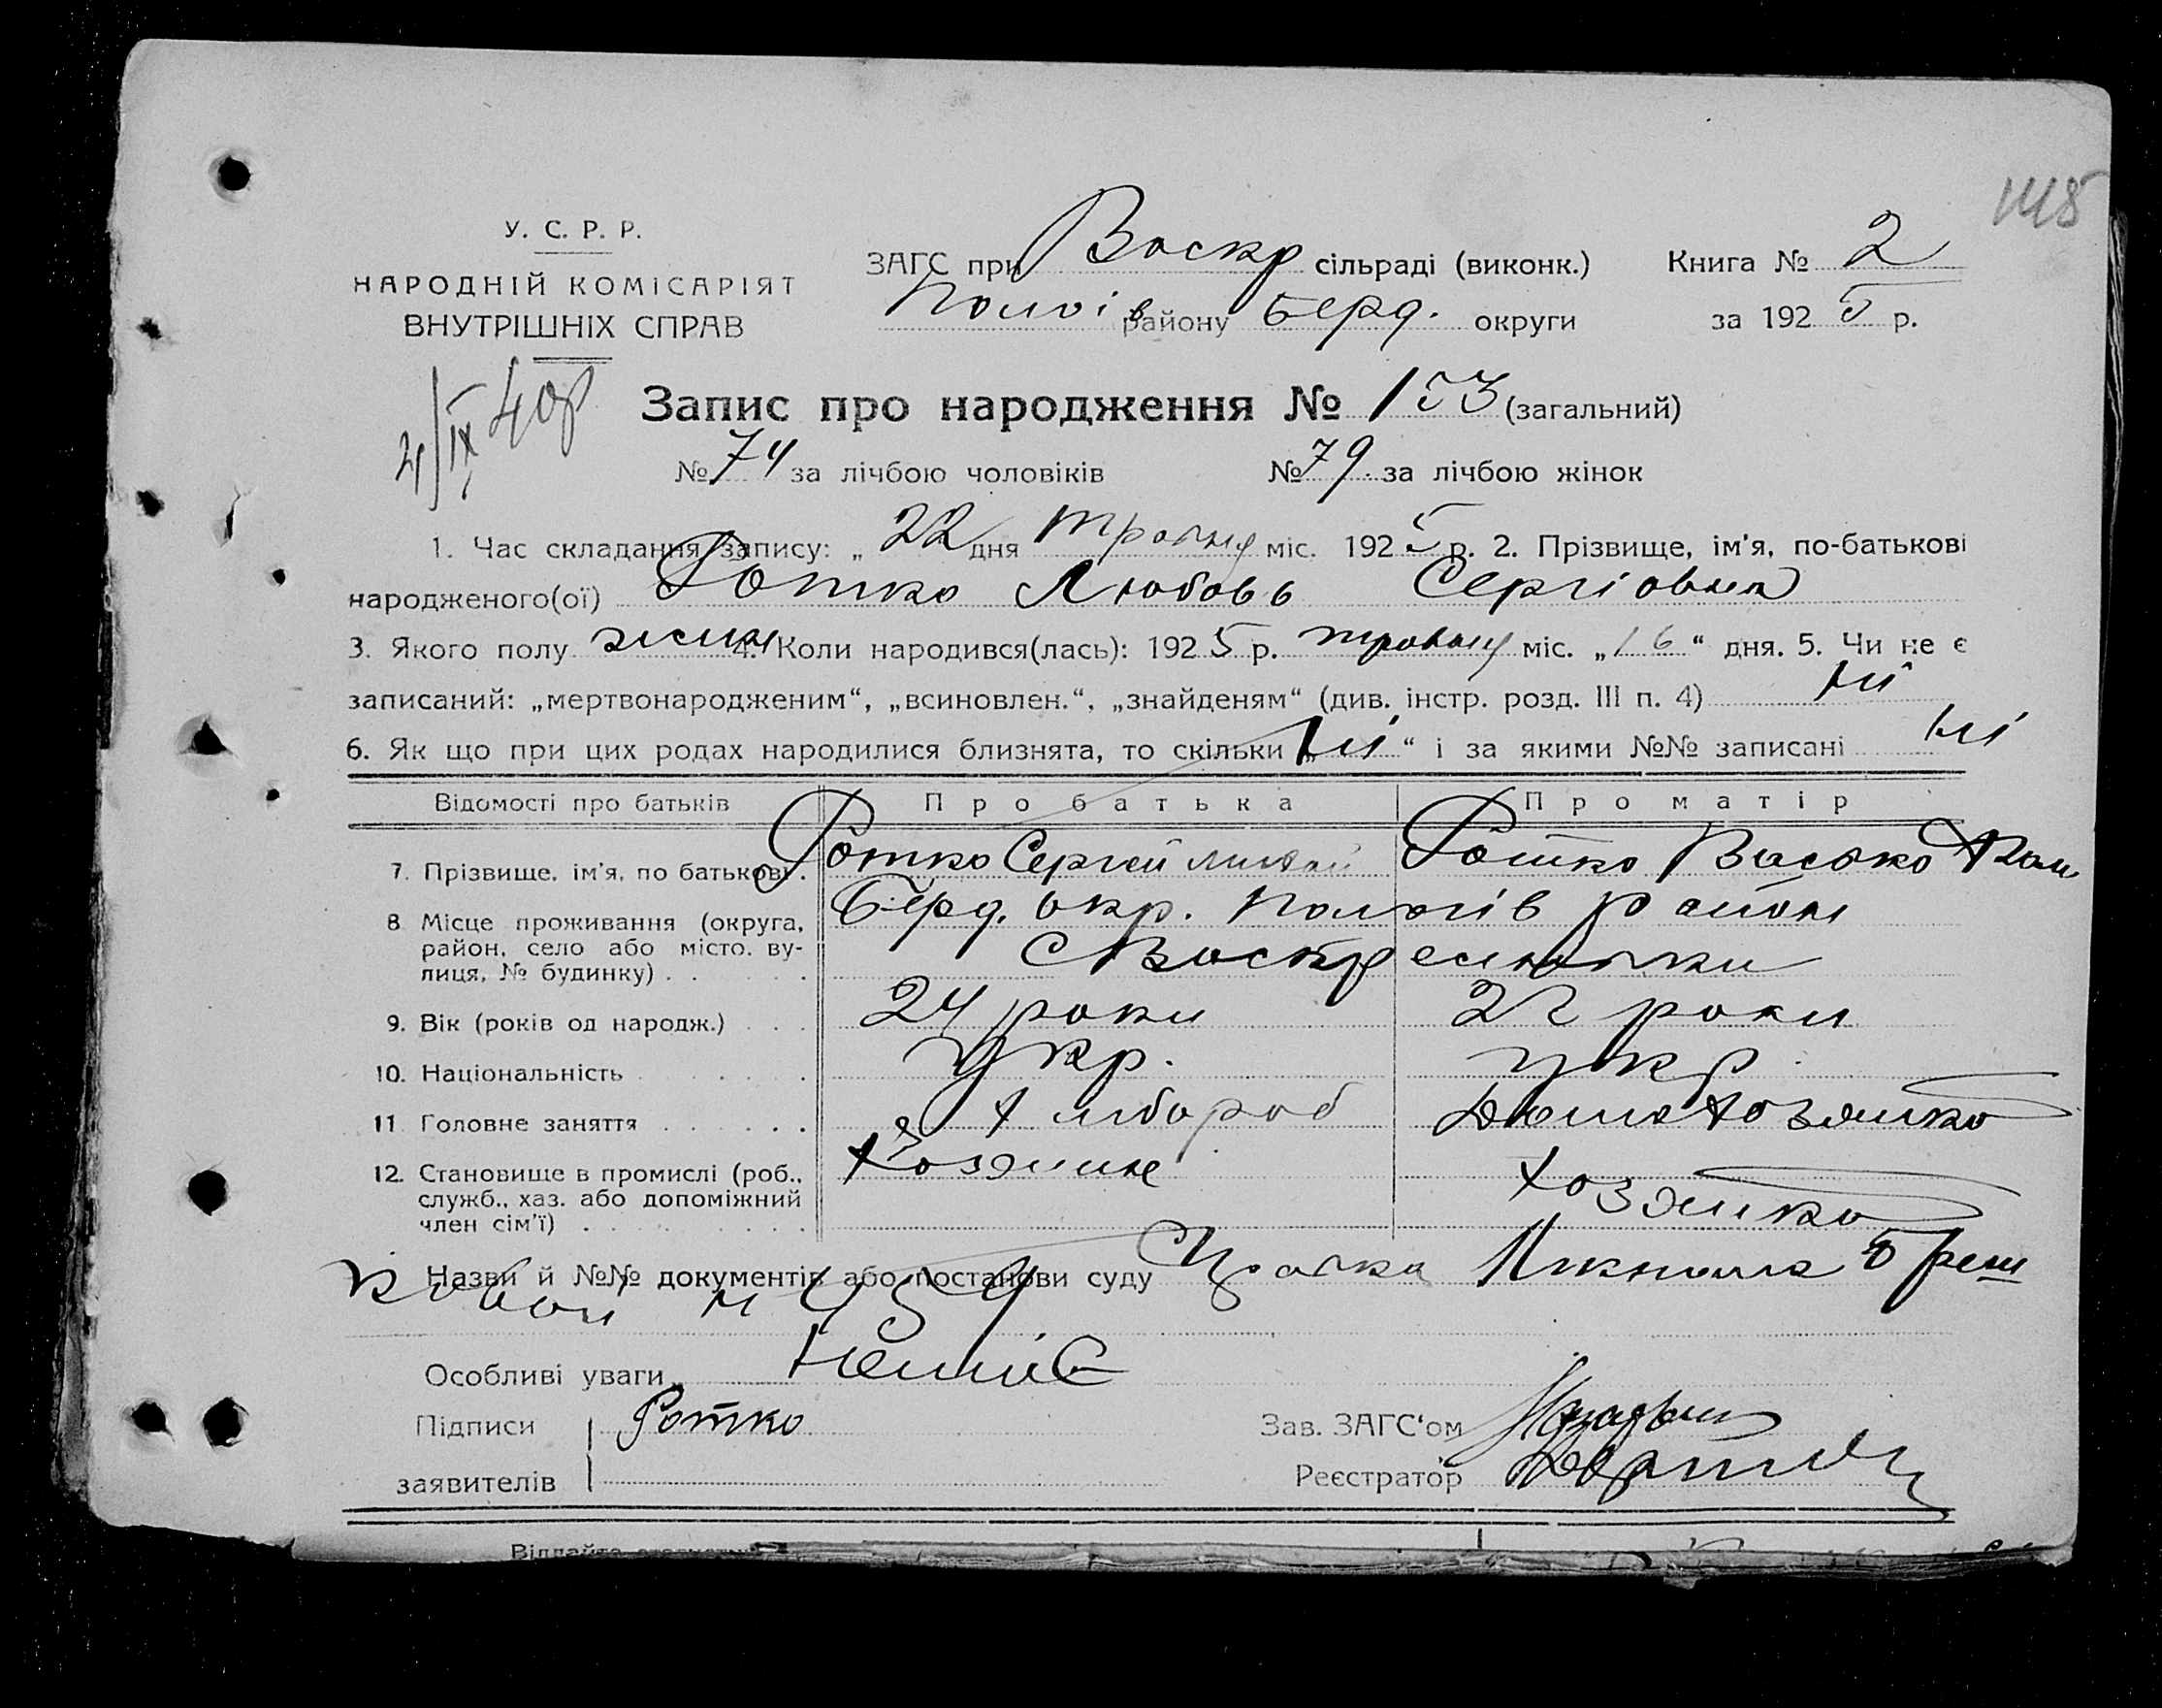 145
У. С. Р. Р.
НАРОДНІЙ КОМІСАРІЯТ
ВНУТРІШНІХ СПРАВ
ЗАГС при Воскр сільраді (виконк.) Книга № 2
Пологів району Берд. округи за 1925 р.
4/IX 40р
Запис про народження № 153 (загальний)
№ 74 за лічбою чоловіків № 79 за лічбою жінок
1. Час складання запису: „ 22 дня травня міс. 1925 р. 2. Прізвище, ім'я, по-батькові
народженого(ої) Ротко Любовь Сергіовна
3. Якого полу жіноч 4. Коли народився(лась): 1925 р. травня міс. „16“ дня. 5. Чи не є
записаний: „мертвонародженим“, „всиновлен.“, „знайденям“ (див. інстр. розд. III п. 4) ні
6. Як що при цих родах народилися близнята, то скільки „ні“ і за якими №№ записані ні
Відомості про батьків Про батька Про матір
7. Прізвище, ім'я, по батькові. Ротко Сергей Ротко
8 Місце проживання (округа, Берд. окр. Пологів район
район, село або місто. ву-
лиця, № будинку) . . . С Воскресенка
9. Вік (років од народж.) . . . 24 роки 22 роки
10. Національність . . . укр. укр
11 Головне заняття . . . хлібороб Домохозяйка
12. Становище в промислі (роб., хозяин хозяйка
служб., хаз. або допоміжний
член сім'ї) . . .
Назви й №№ документів або постанови суду
Особливі уваги Немає
Підписи Ротко Зав. ЗАГС'ом
заявителів Реєстратор